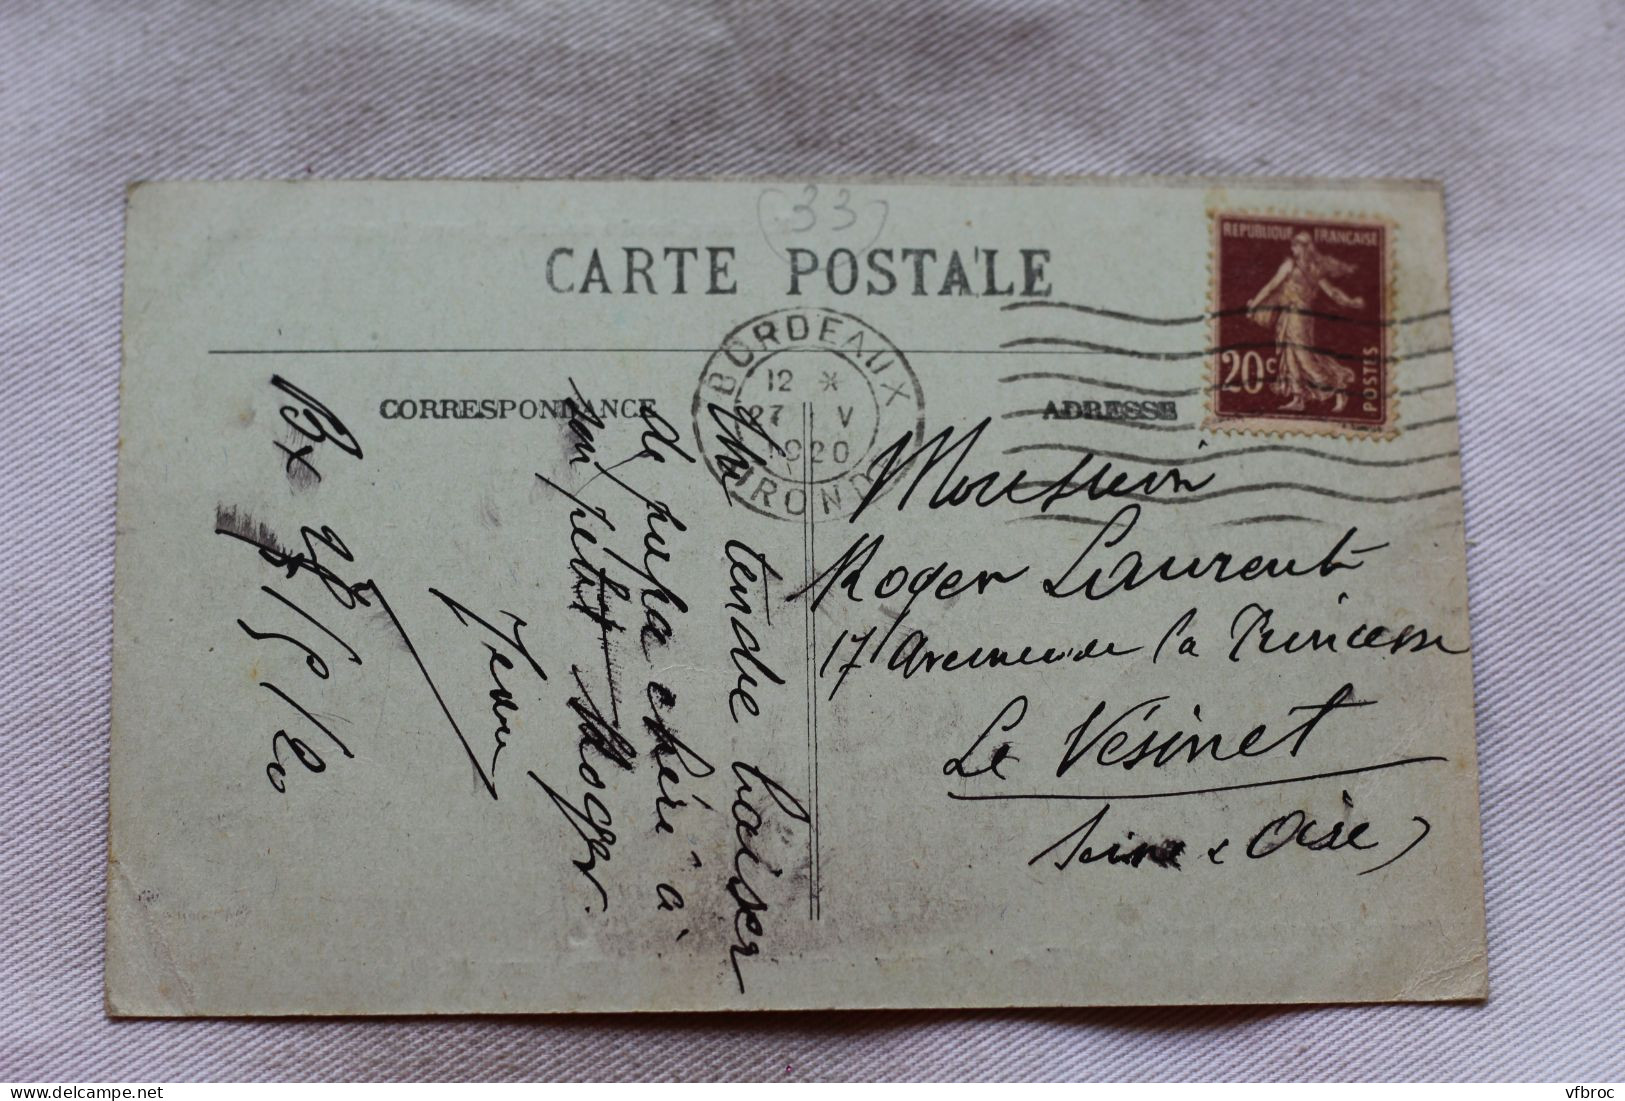 (33)
CARTE POSTALE
REPUBLIQUE FRANÇAISE
20c
POSTES
BORDEAUX
12 *
27 V
1920
GIRONDE
CORRESPONDANCE
ADRESSE
Monsieur
Roger Laurent
17 Avenue de la Princesse
Le Vésinet
Seine & Oise)
Un tendre baiser
de papa chéri à
son petit Roger.
Bx 28/5/20
delcampe.net
vfbroc